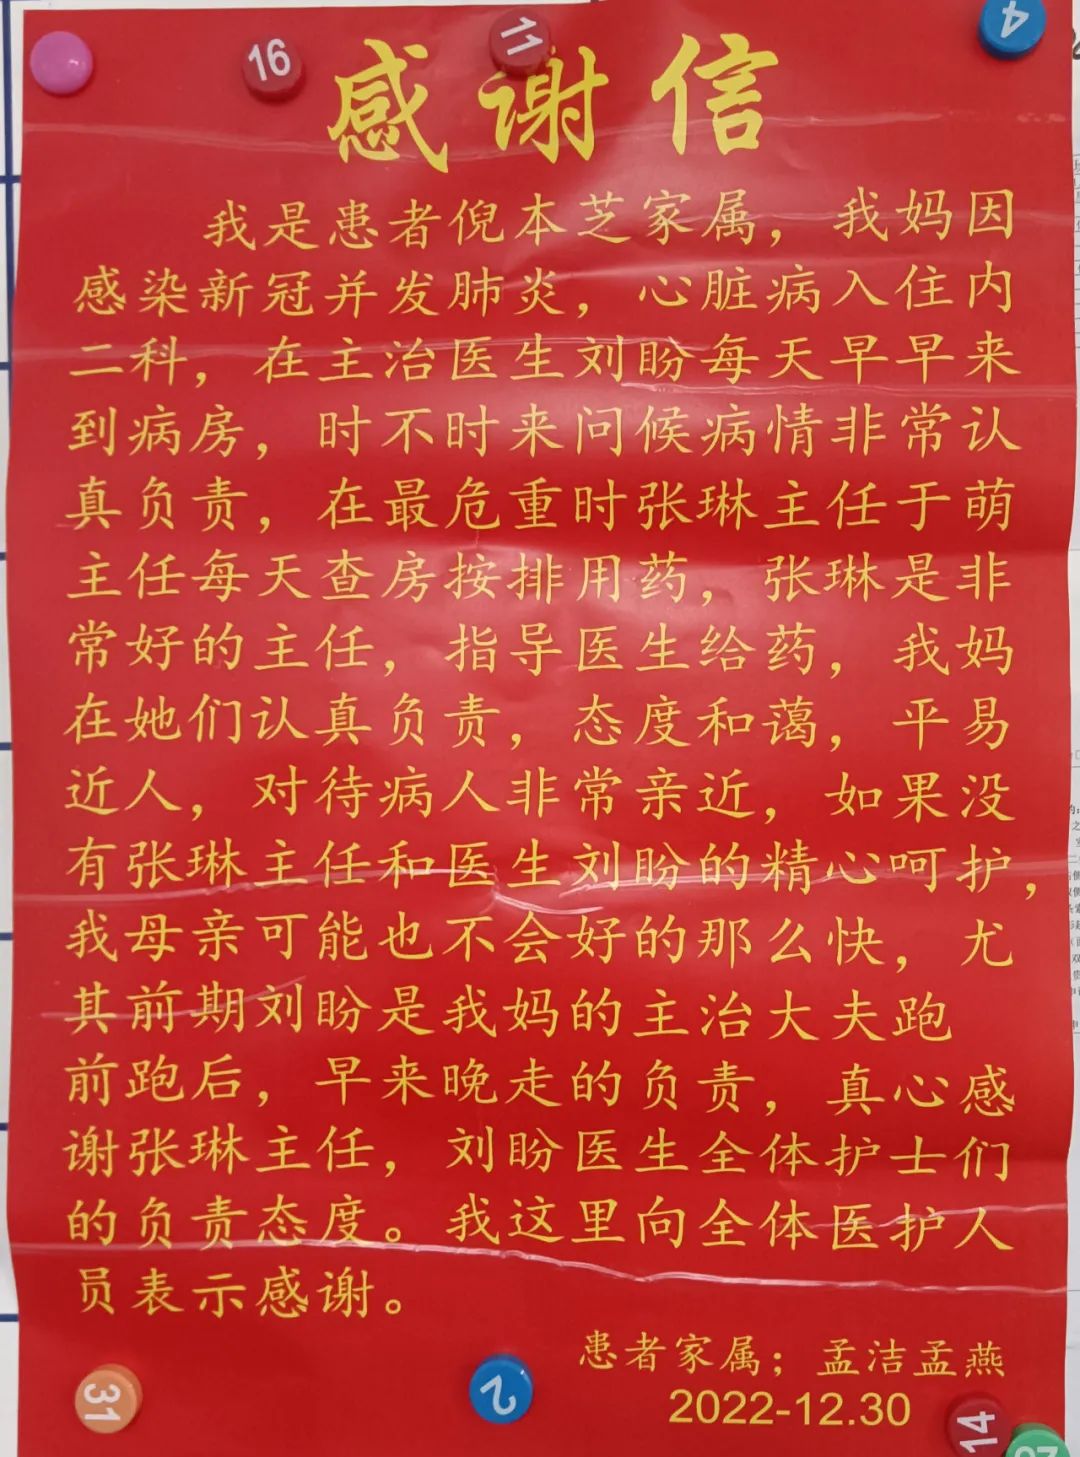 16
11
4
感谢信
我是患者倪本芝家属，我妈因
感染新冠并发肺炎，心脏病入住内
二科，在主治医生刘盼每天早早来
到病房，时不时来问候病情非常认
真负责，在最危重时张琳主任于萌
主任每天查房按排用药，张琳是非
常好的主任，指导医生给药，我妈
在她们认真负责，态度和蔼，平易
近人，对待病人非常亲近，如果没
有张琳主任和医生刘盼的精心呵护，
我母亲可能也不会好的那么快，尤
其前期刘盼是我妈的主治大夫跑
前跑后，早来晚走的负责，真心感
谢张琳主任，刘盼医生全体护士们
的负责态度。我这里向全体医护人
员表示感谢。
患者家属；孟洁孟燕
2022-12.30
31
2
14